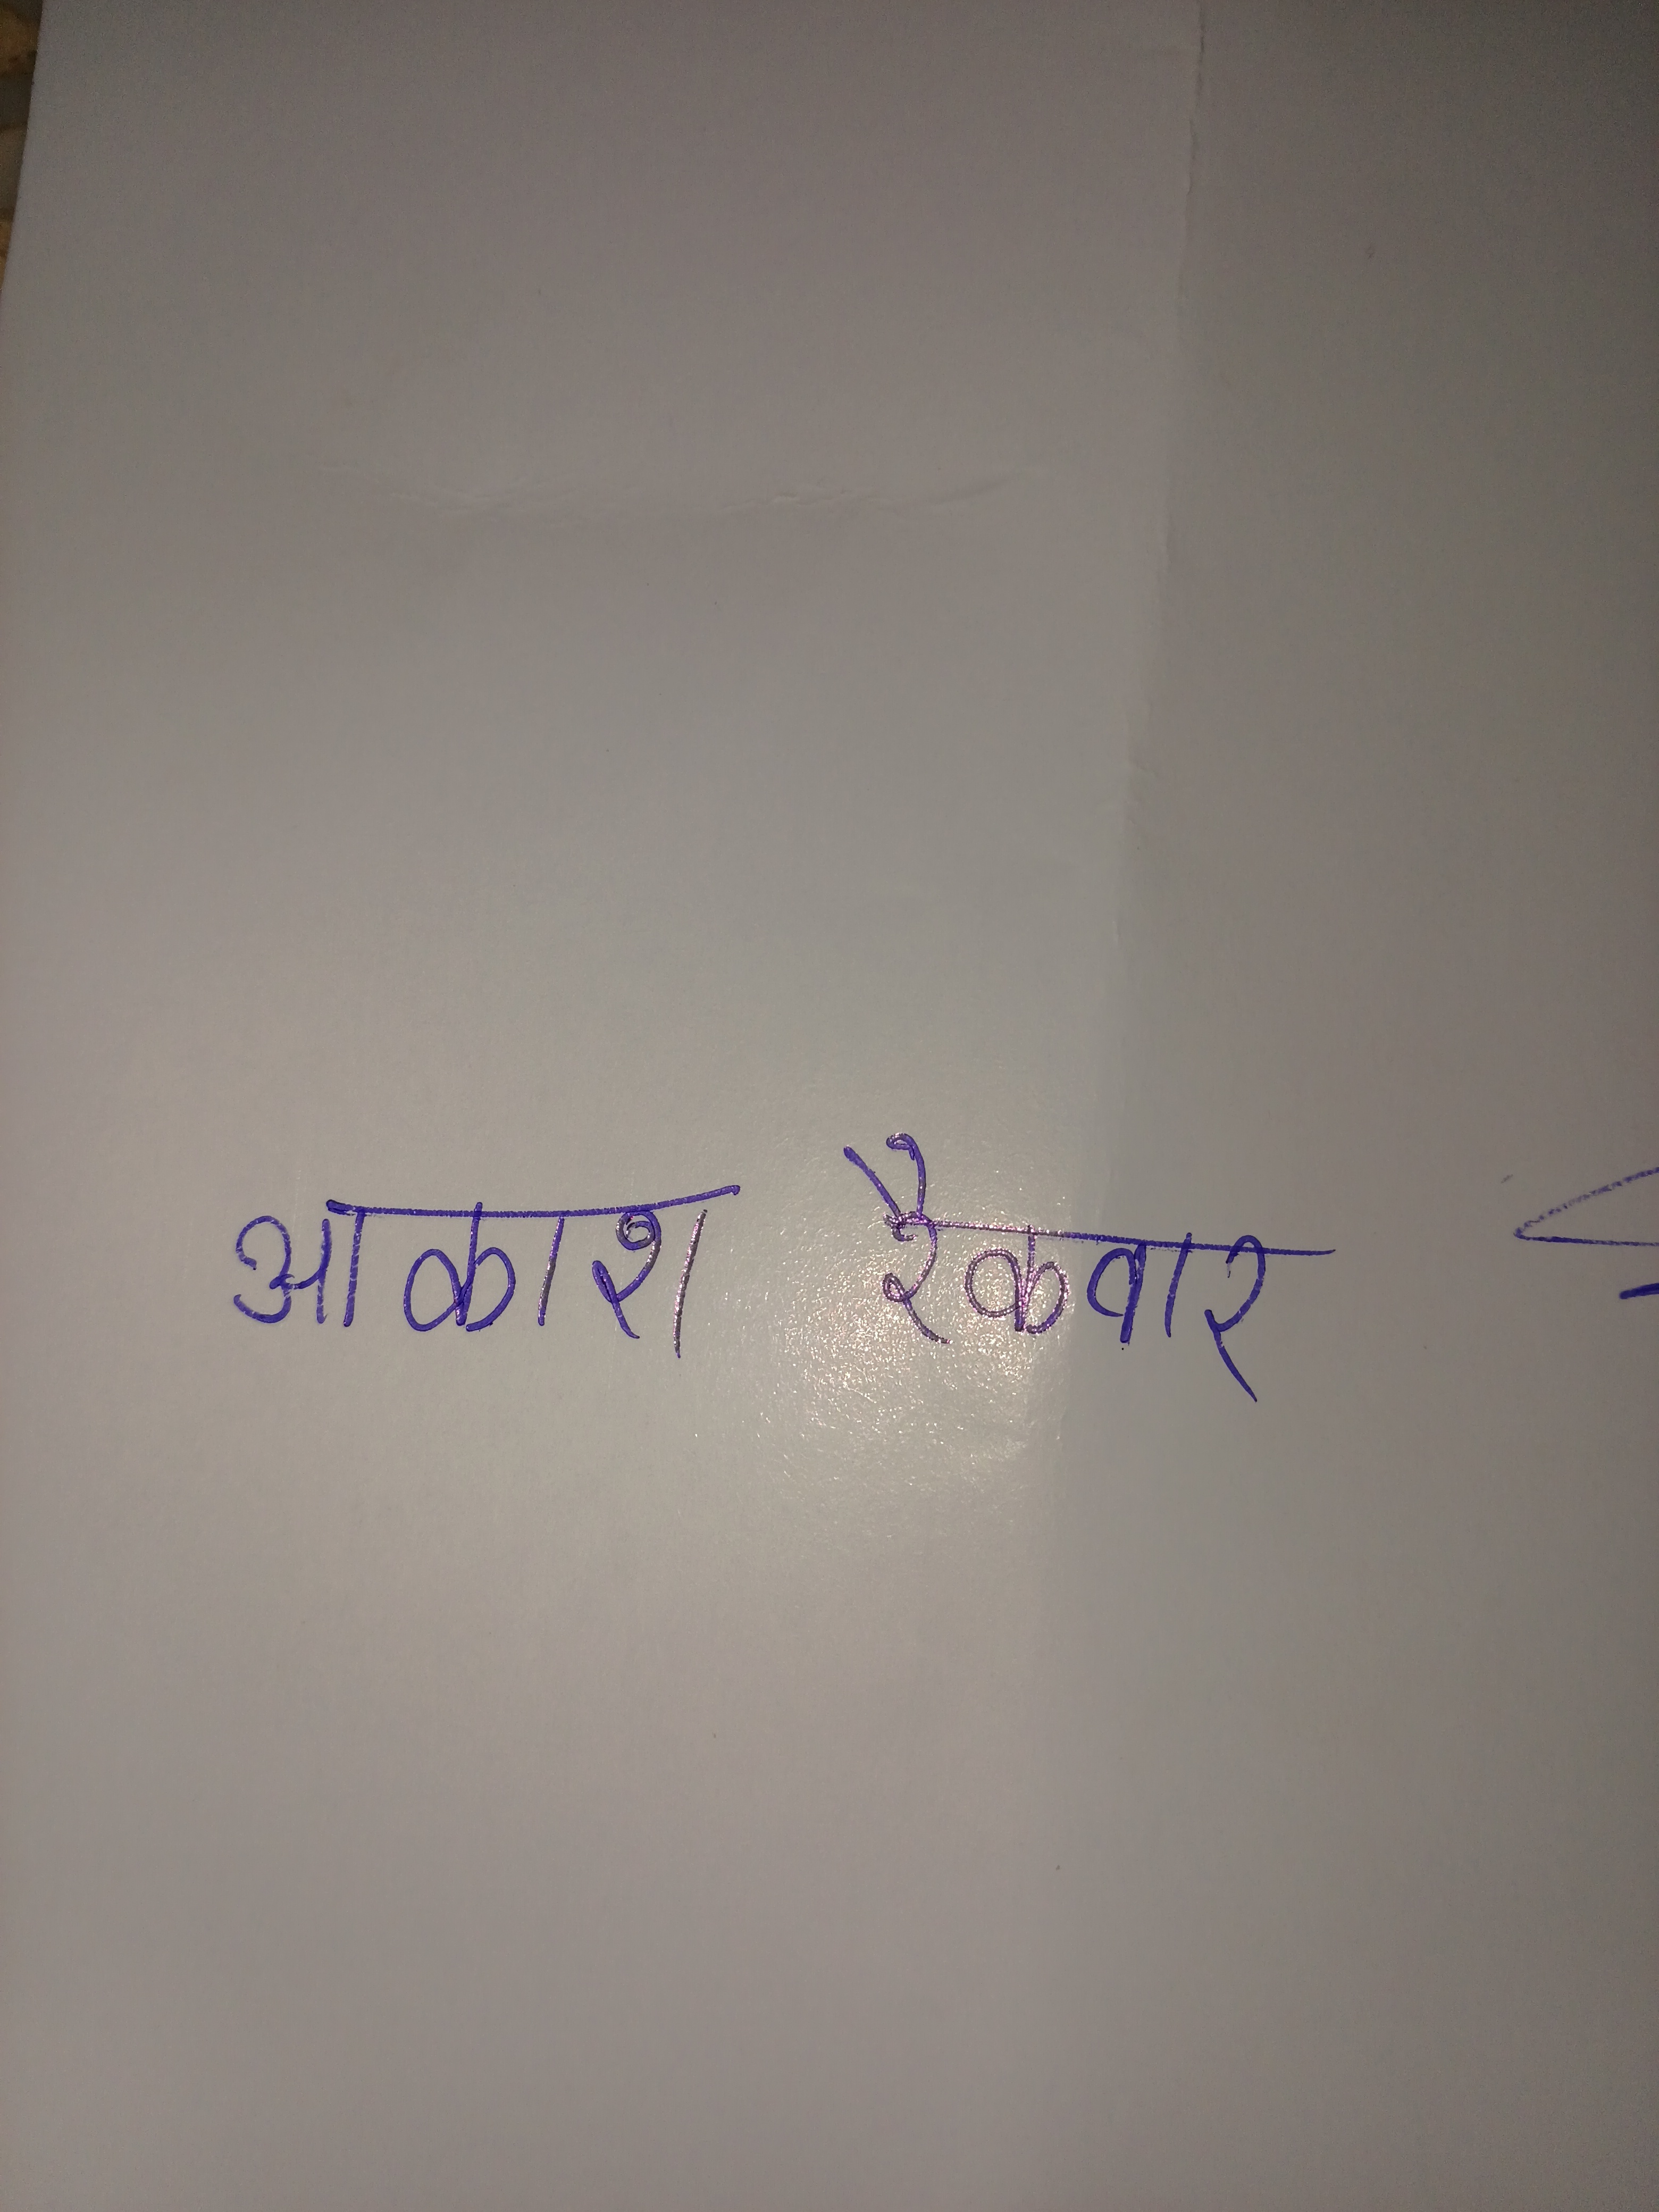 आकाश रैकवार